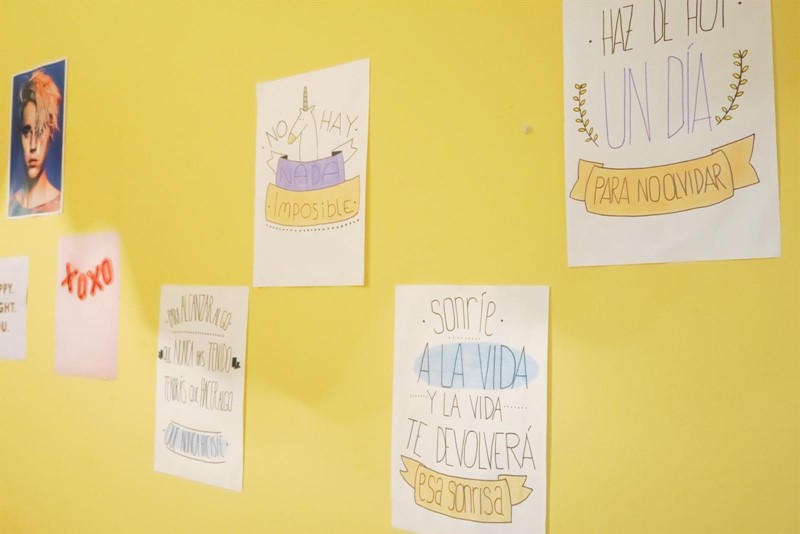 XOXO
PPY.
GHT.
U.
PARA ALCANZAR ALGO
QUE NUNCA HAS TENIDO
TENDRÁS QUE HACER ALGO
QUE NUNCA HICISTE
NO HAY
NADA
·IMPOSIBLE·
·sonríe·
A LA VIDA
Y LA VIDA
TE DEVOLVERÁ
esa sonrisa
·HAZ DE HOY·
UN DÍA
PARA NO OLVIDAR